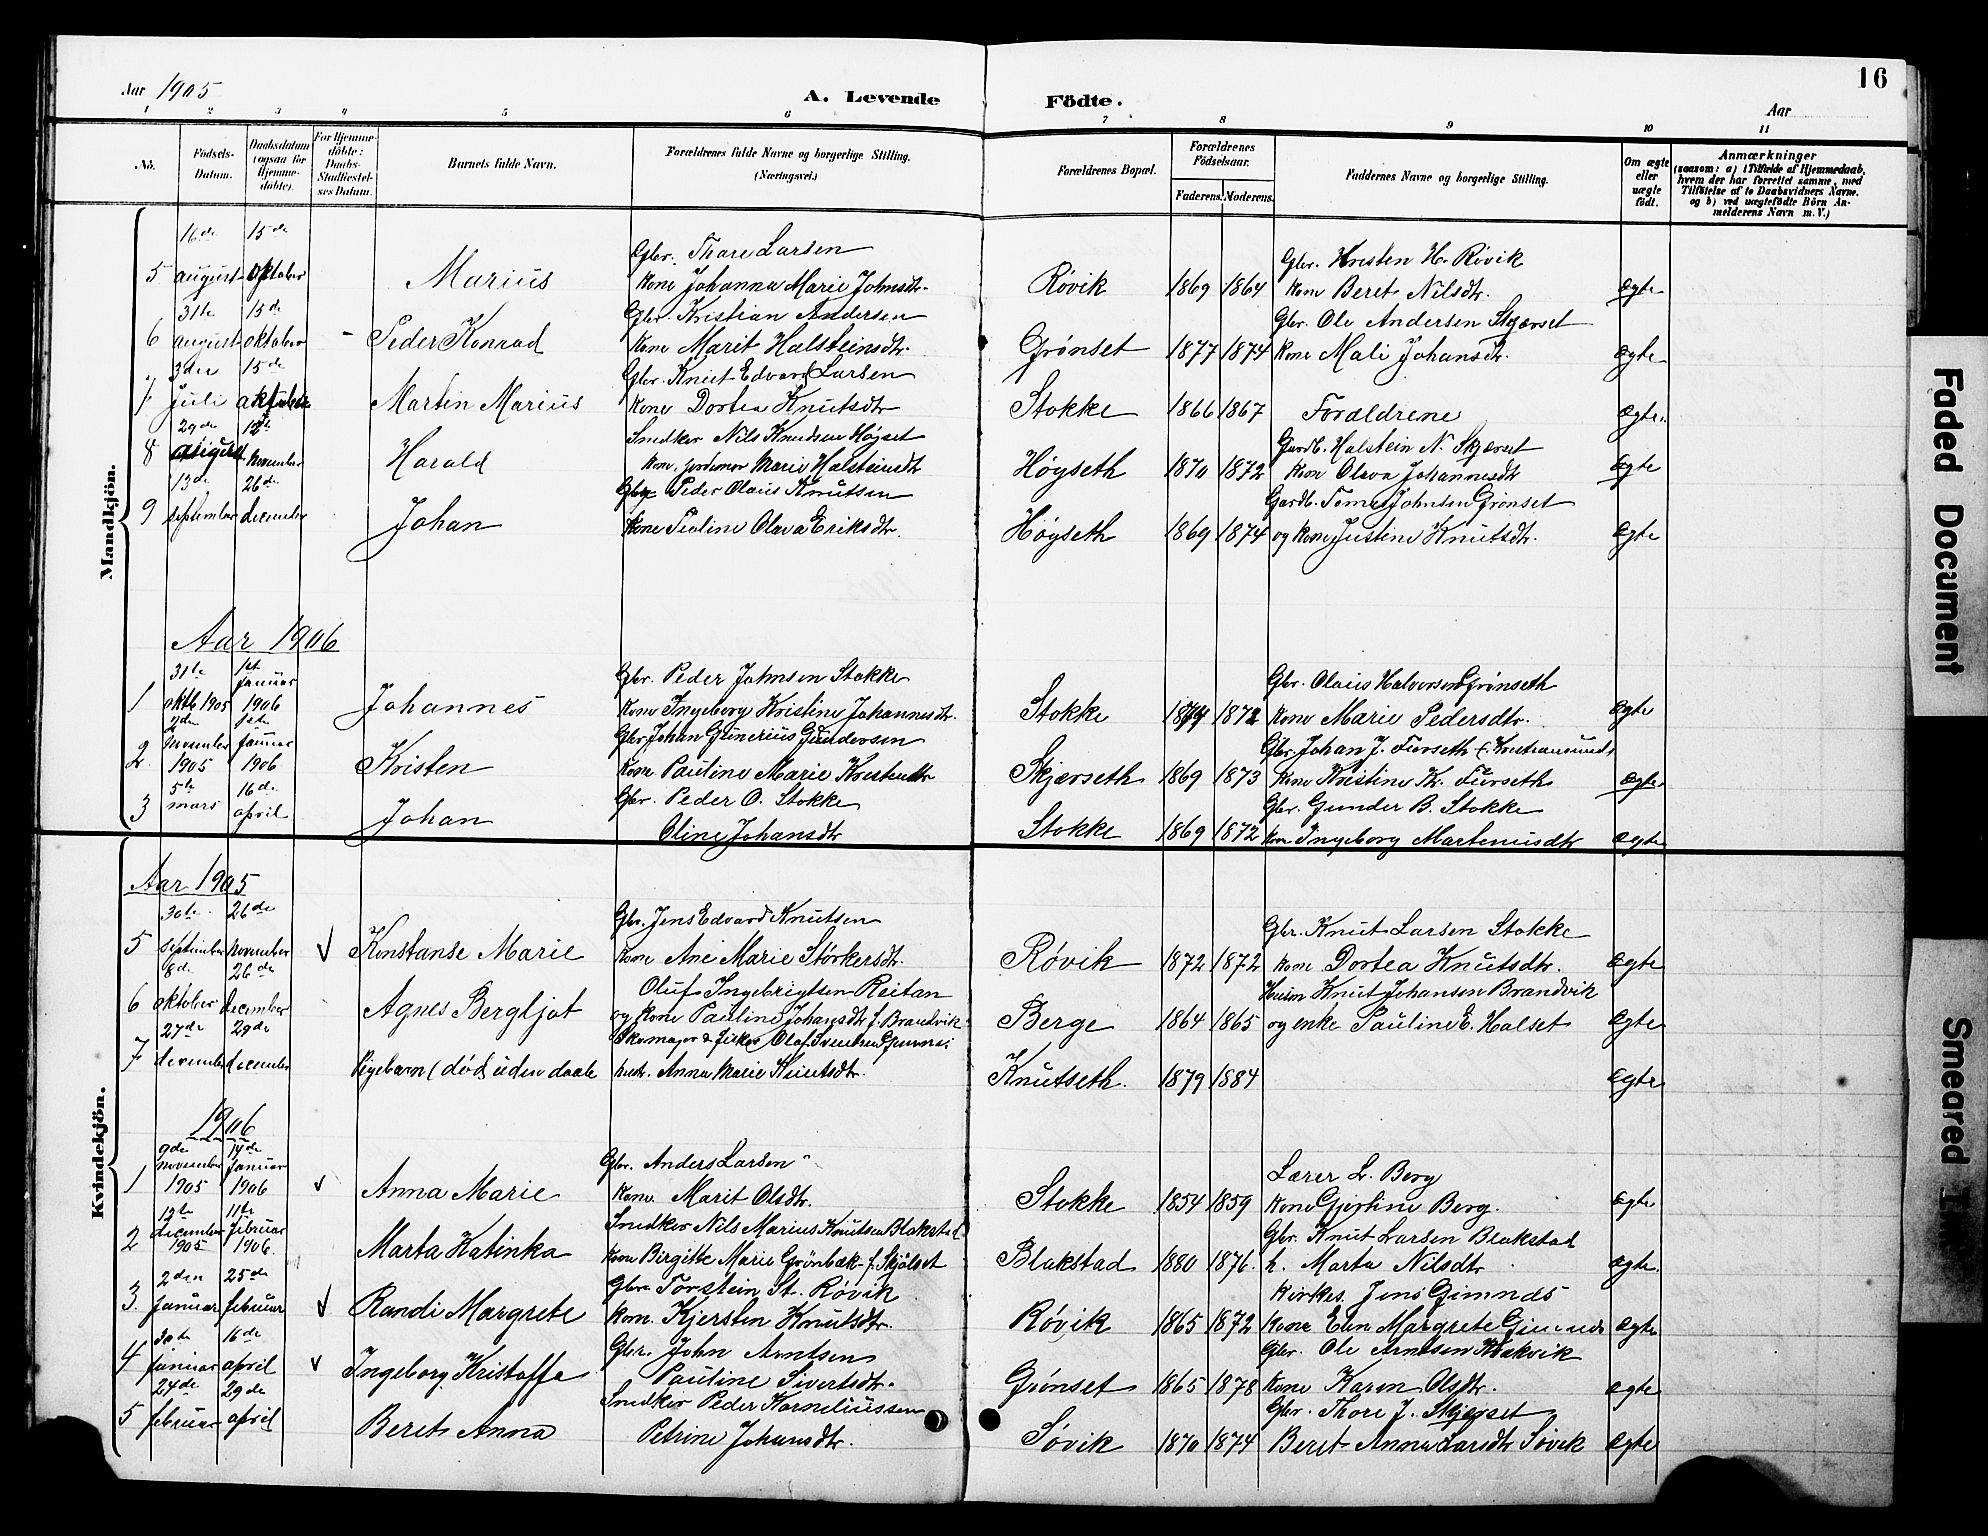 16
Aar 1905
A. Levende Födte.
Aar
1 2 3 4 5 6 7 8 9 10 11
No.
Födsels-Datum.
Daabsdatum (ogsaa for Hjemme-döbte).
For Hjemme-döbte: Daabs-Stadfæstel-ses Datum.
Barnets fulde Navn.
Forældrenes fulde Navne og borgerlige Stilling. (Næringsvei.)
Forældrenes Bopæl.
Forældrenes Födselsaar.
Faderens. Moderens.
Faddernes Navne og borgerlige Stilling.
Om ægte eller uægte födt.
Anmærkninger
(saasom: a) i Tilfælde af Hjemmedaab, hvem der har forrettet samme, med Tilföielse af to Daabsvidners Navne, og b) ved uægtefödte Börn An-melderens Navn m. V.)
Mandkjön.
16de 15de Gbr. Thore Larsen Gbr. Kristen H. Røvik
5 august oktober Marius kone Johanna Marie Johnsdtr. Røvik 1869 1864 kone Beret Nilsdtr. ægte
31te 15de Gbr. Kristian Andersen Gbr. Ole Andersen Skjærset
6 august oktober - Peder Konrad kone Marit Halsteinsdtr. Grønset 1877 1874 kone Mali Johansdtr. ægte
3die 15de Gbr. Knut Edvard Larsen
7 juli oktober Martin Marius kone Dortea Knutsdtr Stokke 1866 1867 Forældrene ægte.
29de 12te Snedker Nils Knudsen Høyset Gardb. Halstein N. Skjærset
8 august november Harald kone, jordmor Marie Halsteinsdtr Høyseth 1870 1872 kone Olava Johannesdtr ægte
13de 26de Gbr. Peder Olaus Knutsen Gardb. Tomas Johnsen Grønset
9 september december Johan kone Pauline Olava Eriksdtr. Høyseth 1869 1874 og kone Justine Knutsdtr. ægte
Aar 1906
31te 1ste januar Gbr. Peder Johnsen Stokke Gbr. Olaus Halvorsen Grønseth
1 oktb 1905 1906 Johannes kone Ingeborg Kristine Johannesdtr. Stokke 1872 kone Marie Pedersdtr. ægte
2den november 1ste januar Gbr. Johan Gunerius Gundersen Gbr. Johan J. Furseth (Kristiansund)
2 1905 1906 Kristen kone Pauline Marie Kristensdtr Skjærseth 1869 1873 kone Kristine Kr. Furseth ægte
5te 16de Gbr. Peder O. Stokke Gbr. Gunder B. Stokke
3 mars april Johan Oline Johansdtr Stokke 1869 1872 kone Ingeborg Martenusdtr ægte
Kvindekjön.
Aar 1905
30te 26de Gbr. Jens Edvard Knutsen Gbr. Knut Larsen Stokke
5 september november Konstanse Marie kone Ane Marie Størkersdtr. Røvik 1872 1872 kone Dortea Knutsdtr. ægte
8de 26de Oluf Ingebrigtsen Reitan Husm Knut Johansen Brandvik
6 oktober december Agnes Bergljot og kone Pauline Johansdtr f. Brandvik Berge 1864 1865 og enke Pauline E. Halset ægte
27de 29de Skomager & fisker Olaf
7 december december Pigebarn (død) uden daab hustr. Anna Marie Knutsdtr. Knutseth. 1879 1884 ægte
1906
9de november 14de januar Gbr. Anders Larsen Lærer L. Berg
1 1905 1906 Anna Marie kone Marit Olsdtr. Stokke 1854 1859 kone Gjertine Berg. ægte
12te december 11te februar Snedker Nils Marius Knutsen Blakstad Gbr. Knut Larsen Blakstad
2 1905 1906. Marta Katinka kone Birgitte Marie Grønbæk f. Skjølset Blakstad 1880 1876. h. Marta Nilsdtr ægte.
2den 25de Gbr. Torstein St. Røvik Kirkes. Jens Gimnæs
3. januar februar Randi Margrete kone Kjersten Knutsdtr. Røvik 1865 1872 kone Elen Margrete Gimnæs ægte
30te 16de Gbr. John Arntsen Gbr. Ole Arntsen
4 januar april Ingeborg Kristoffa Pauline Sivertsdtr. Grønset 1865 1878 kone Karen Olsdtr. ægte
24de 29de Snedker Peder Korneliussen Gbr. Thore J. Skjerset
5 februar april Beret Anna Petrine Johansdtr. Søvik 1870 1874 Beret Anna Larsdtr Søvik ægte
Faded Document
Smeared